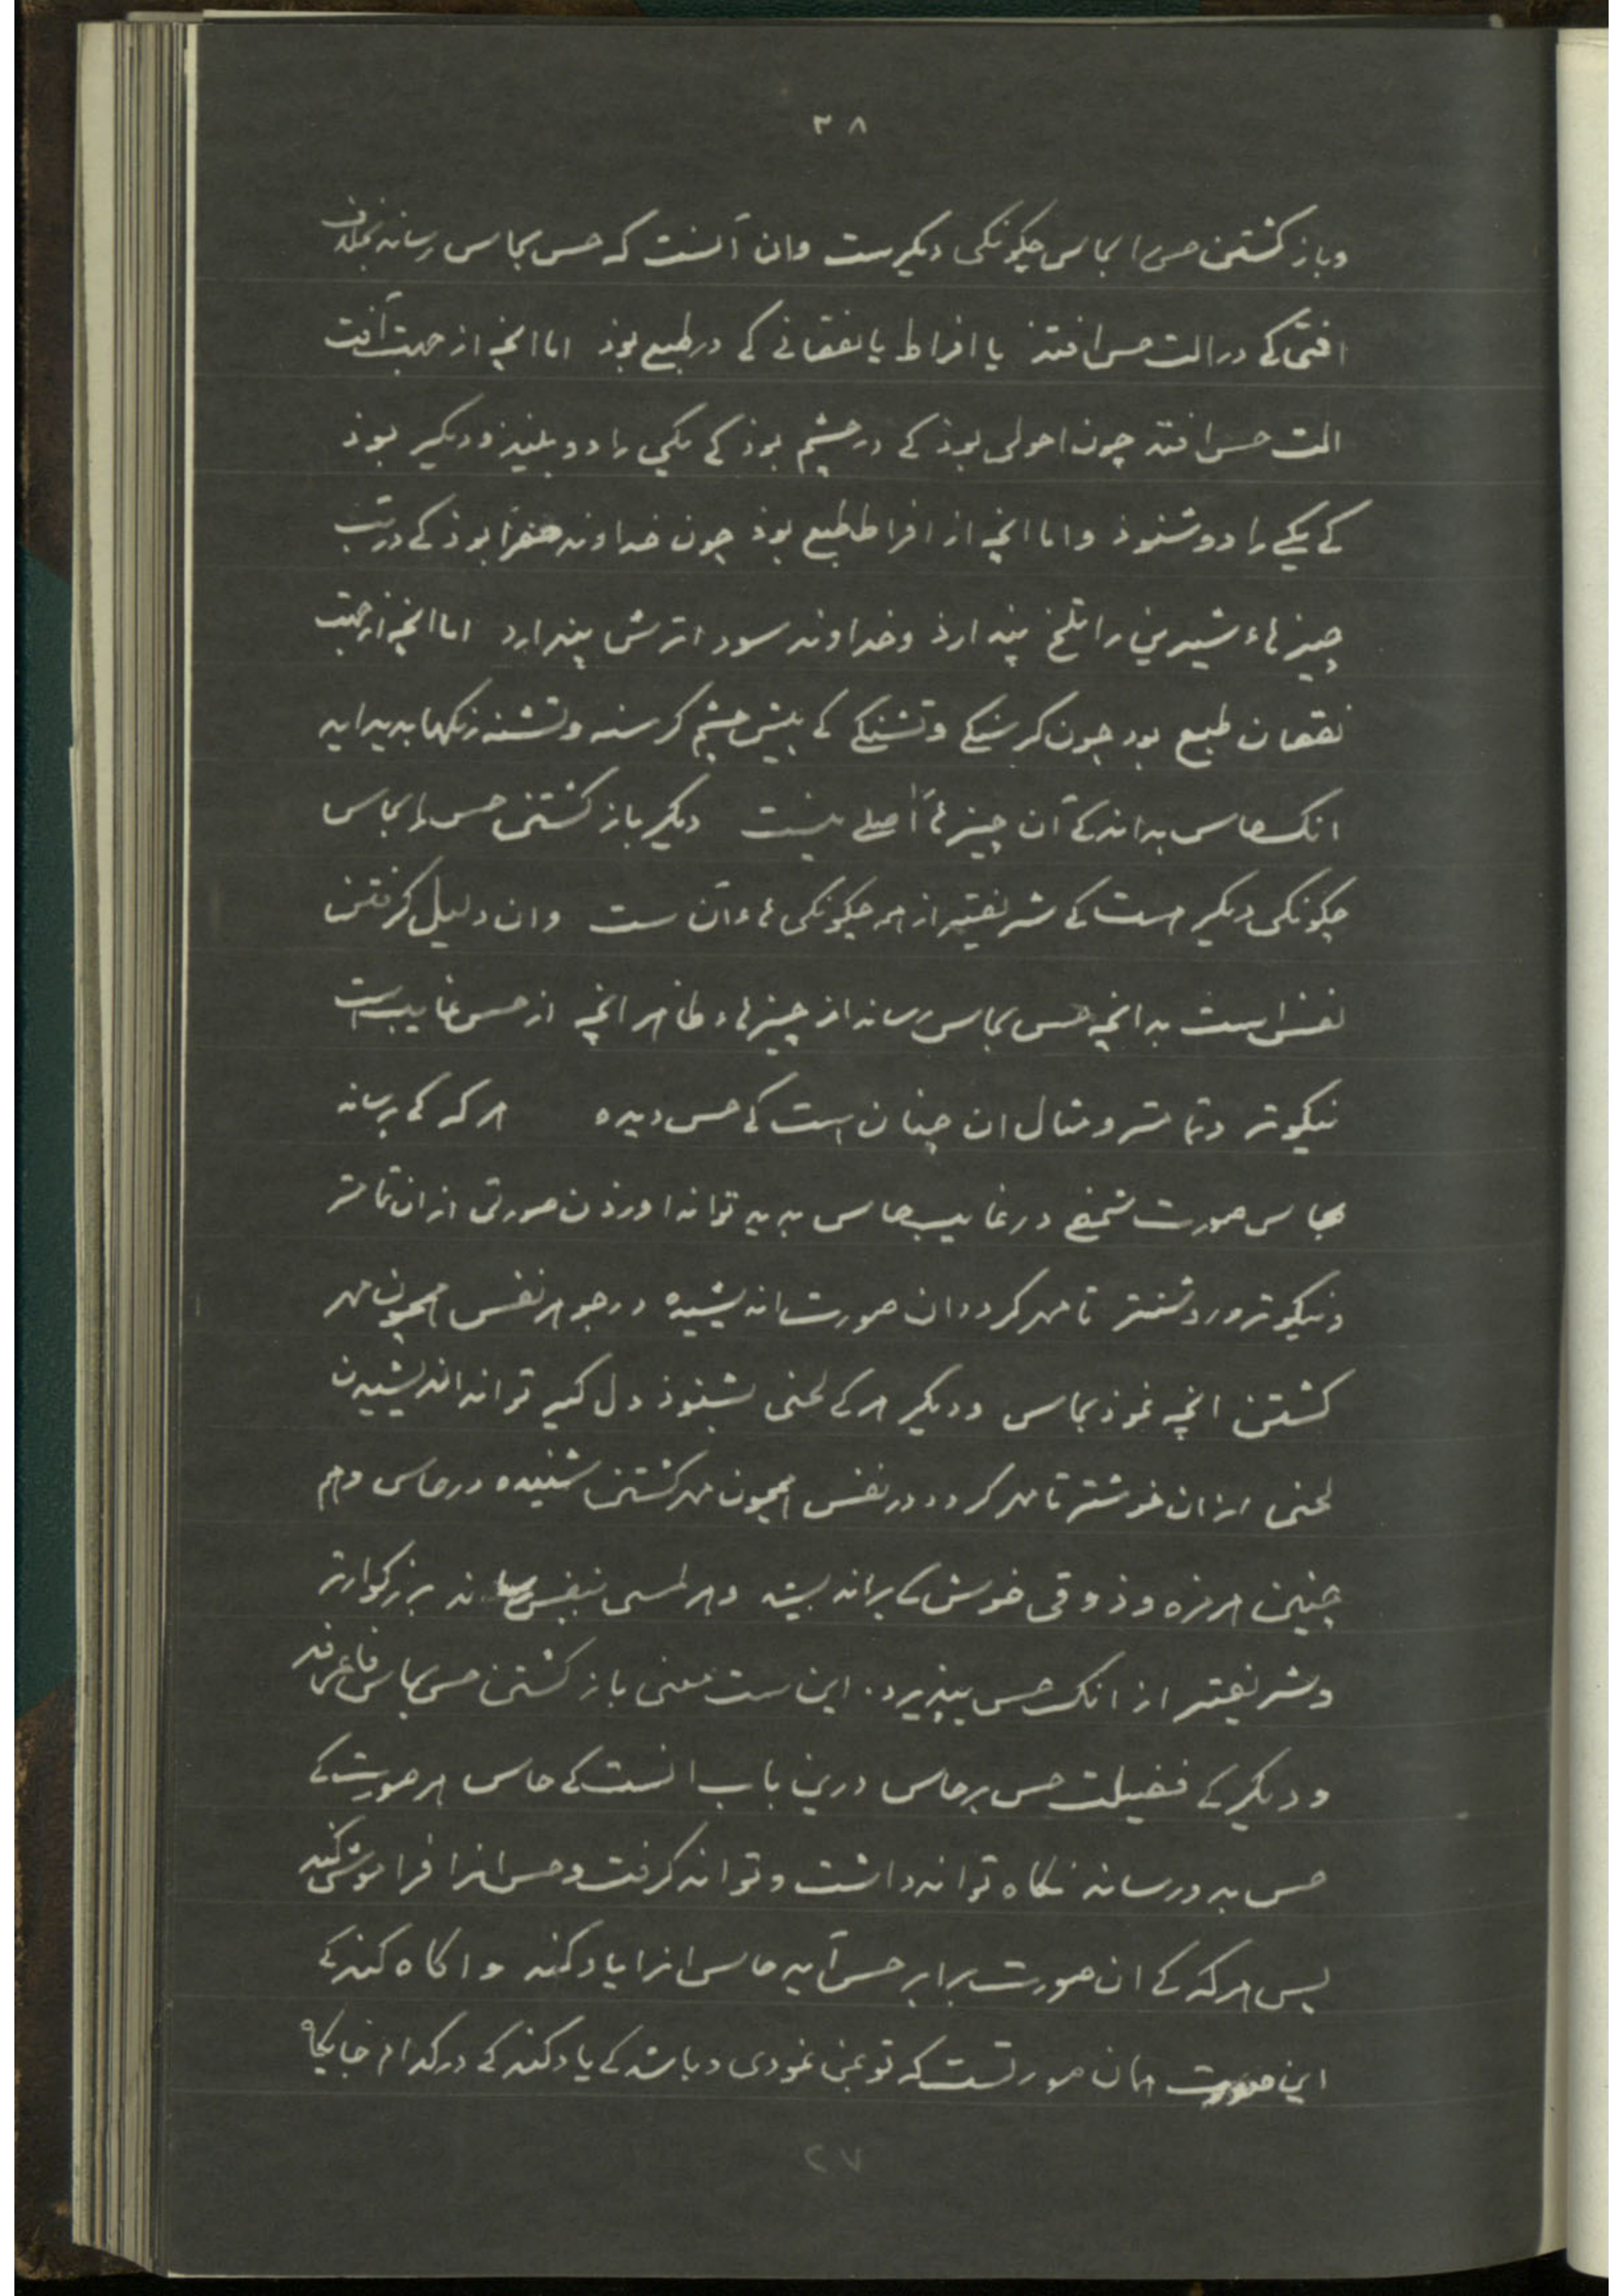 ۳۸
وباز کشتن حس را بحاس چکونکی دیکرست وان آنست که حس بحاس رساند بخلاف
افتی کے در الت حس افتذ یا افراط یا نقصانے کے در طبع بوذ اما انچه از جهت آفت
الت حس افتد چون احولی بوذ کے در چشم بوذ کے یکی را دو بیند و دیکر بوذ
کے یکے را دو شنوذ واما انچه از افراط طبع بوذ چون خداوند صفرا بوذ کے در تب
چیزهاء شیرینی را تلخ پندارذ وخداوند سودا ترش پندارد اما انچه از جهت
نقصان طبع بود چون کرسنکے وتشنکے کے پیش چشم کرسنه وتشنه رنکها پدید اید
انک حاس بداند کے آن چیزهاء اصلے نیست دیکر باز کشتن حس را بحاس
چکونکی دیکر هست کے شریفتر از همه چکونکی هاء آن ست وان دلیل کرفتن
نفس است بدانچه حس بحاس رساند از چیزهاء ظاهر انچه از حس غایب است
نیکوتر وتمامتر ومثال ان چنان است کے حس دیده هر که کے برساند
بحاس صورت شخصے در غایب حاس پدید تواند اورذن صورتی از ان تمامتر
ونیکوتر وروشنتر تا مهر کردد ان صورت اندیشیده در جوهر نفس همچون مهر
کشتن انچه نموذ بحاس ودیکر هر کے لحنی بشنوذ دل کیر تواند اندیشیدن
لحنی از ان خوشتر تا مهر کردد در نفس همچون مهر کشتن شنیده در حاس وهم
چنین هر مزه وذوقی خوش کے براندیشد وهر لمسی بنفس رساند بزرکوارتر
وشریفتر از انک حس بپذیرد. این ست معنی باز کشتن حس بحاس فاعرفه
ودیکر کے فضیلت حس بر حاس درین باب انست کے حاس هر صورت کے
حس بدو رساند نکاه تواند داشت وتواند کرفت وحس انرا فراموش کند
پس هر که کے ان صورت برابر حس آید حاس انرا یاد کند واکاه کند کے
این صورت همان صورتست که تو بمن نمودی وباشد کے یاد کند کے در کدام جایکاه
۲۷